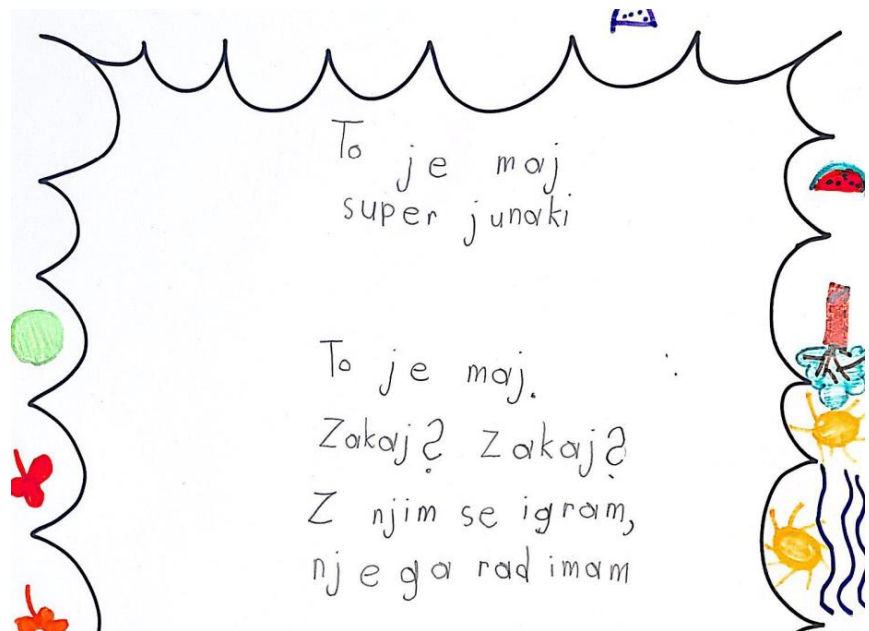 To je maj
super junaki
To je maj.
Zakaj? Zakaj?
Z njim se igram,
njega rad imam